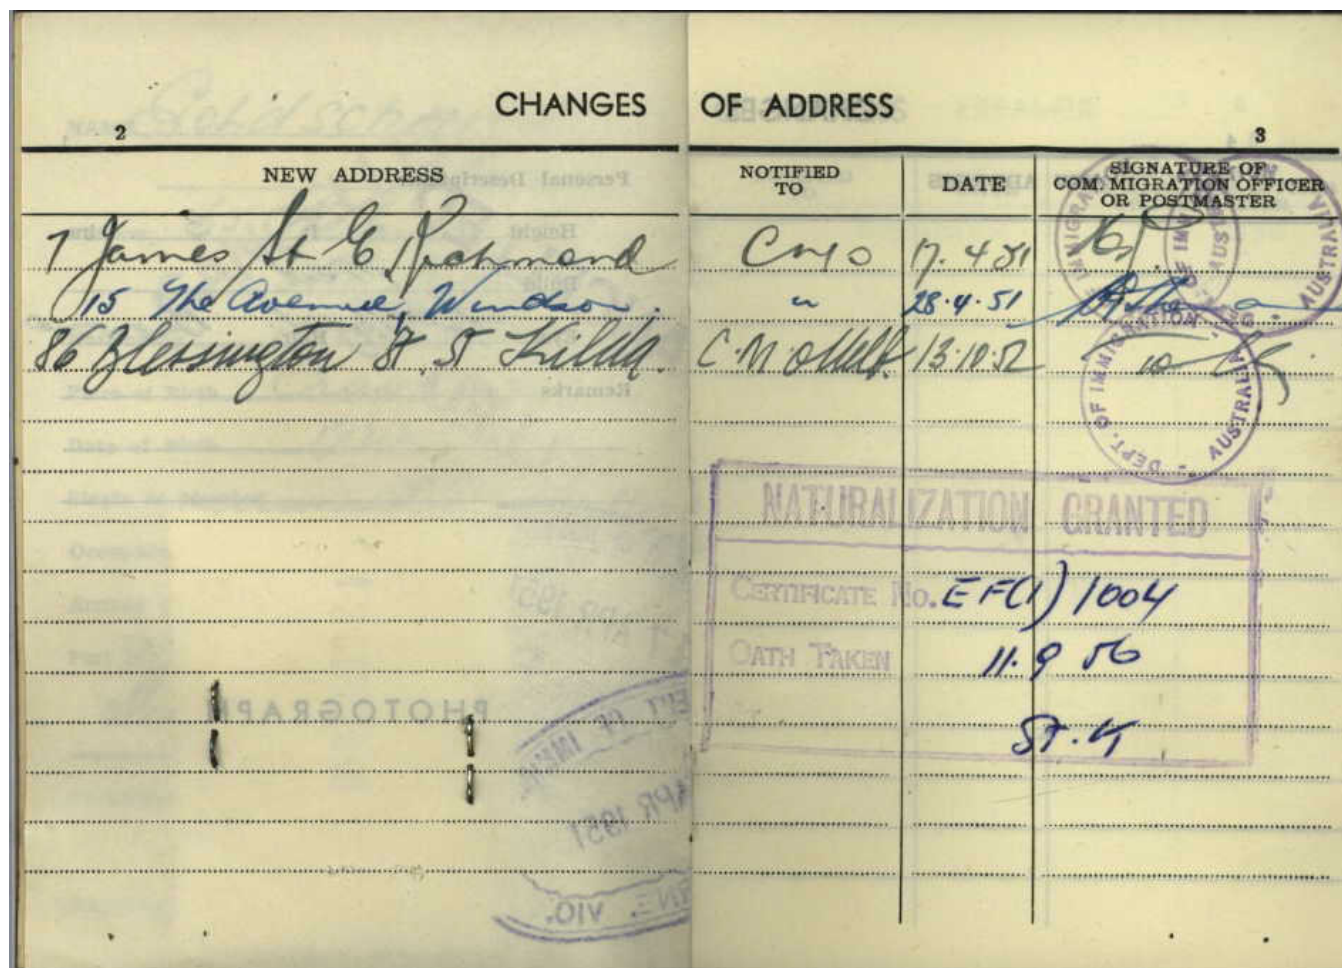 CHANGES OF ADDRESS
2 3
NEW ADDRESS NOTIFIED TO DATE SIGNATURE OF COM. MIGRATION OFFICER OR POSTMASTER
7 James St E. Richmond CMO 17.4.51
15 The Avenue, Windsor. " 28.4.51
86 Blessington St. St Kilda. C.M.O Melb. 13.10.52
DEPT. OF IMMIGRATION AUSTRALIA
NATURALIZATION GRANTED
CERTIFICATE No. EF(1)1004
OATH TAKEN 11.9.56
ST.K
PHOTOGRAPH
APR 1951
VIC.